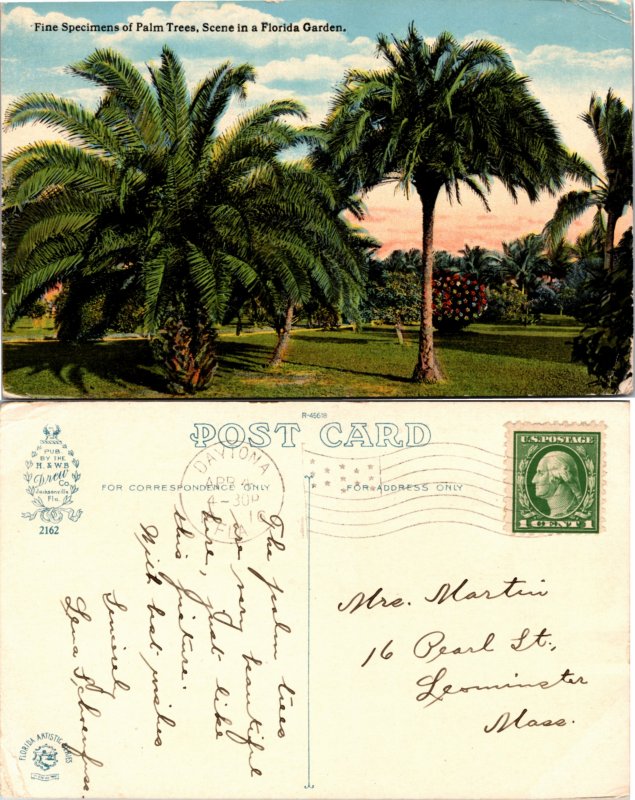 Fine Specimens of Palm Trees, Scene in a Florida Garden.
R-45618
POST CARD
PUB.
BY THE
H. & W.B.
Drew
Co.
Jacksonville,
Fla.
2162
FOR CORRESPONDENCE ONLY
FOR ADDRESS ONLY
DAYTONA
APR
4-30P
U.S. POSTAGE
1 CENT 1
The palm trees
are very beautiful
here, just like
this picture.
With best wishes
Lena
Mrs. Martin
16 Pearl St.,
Leominster
Mass.
FLORIDA ARTISTIC SERIES